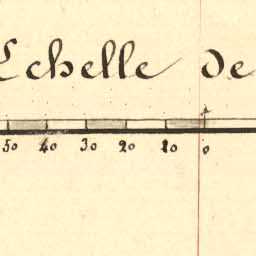 Echelle de
50 40 30 20 10 0